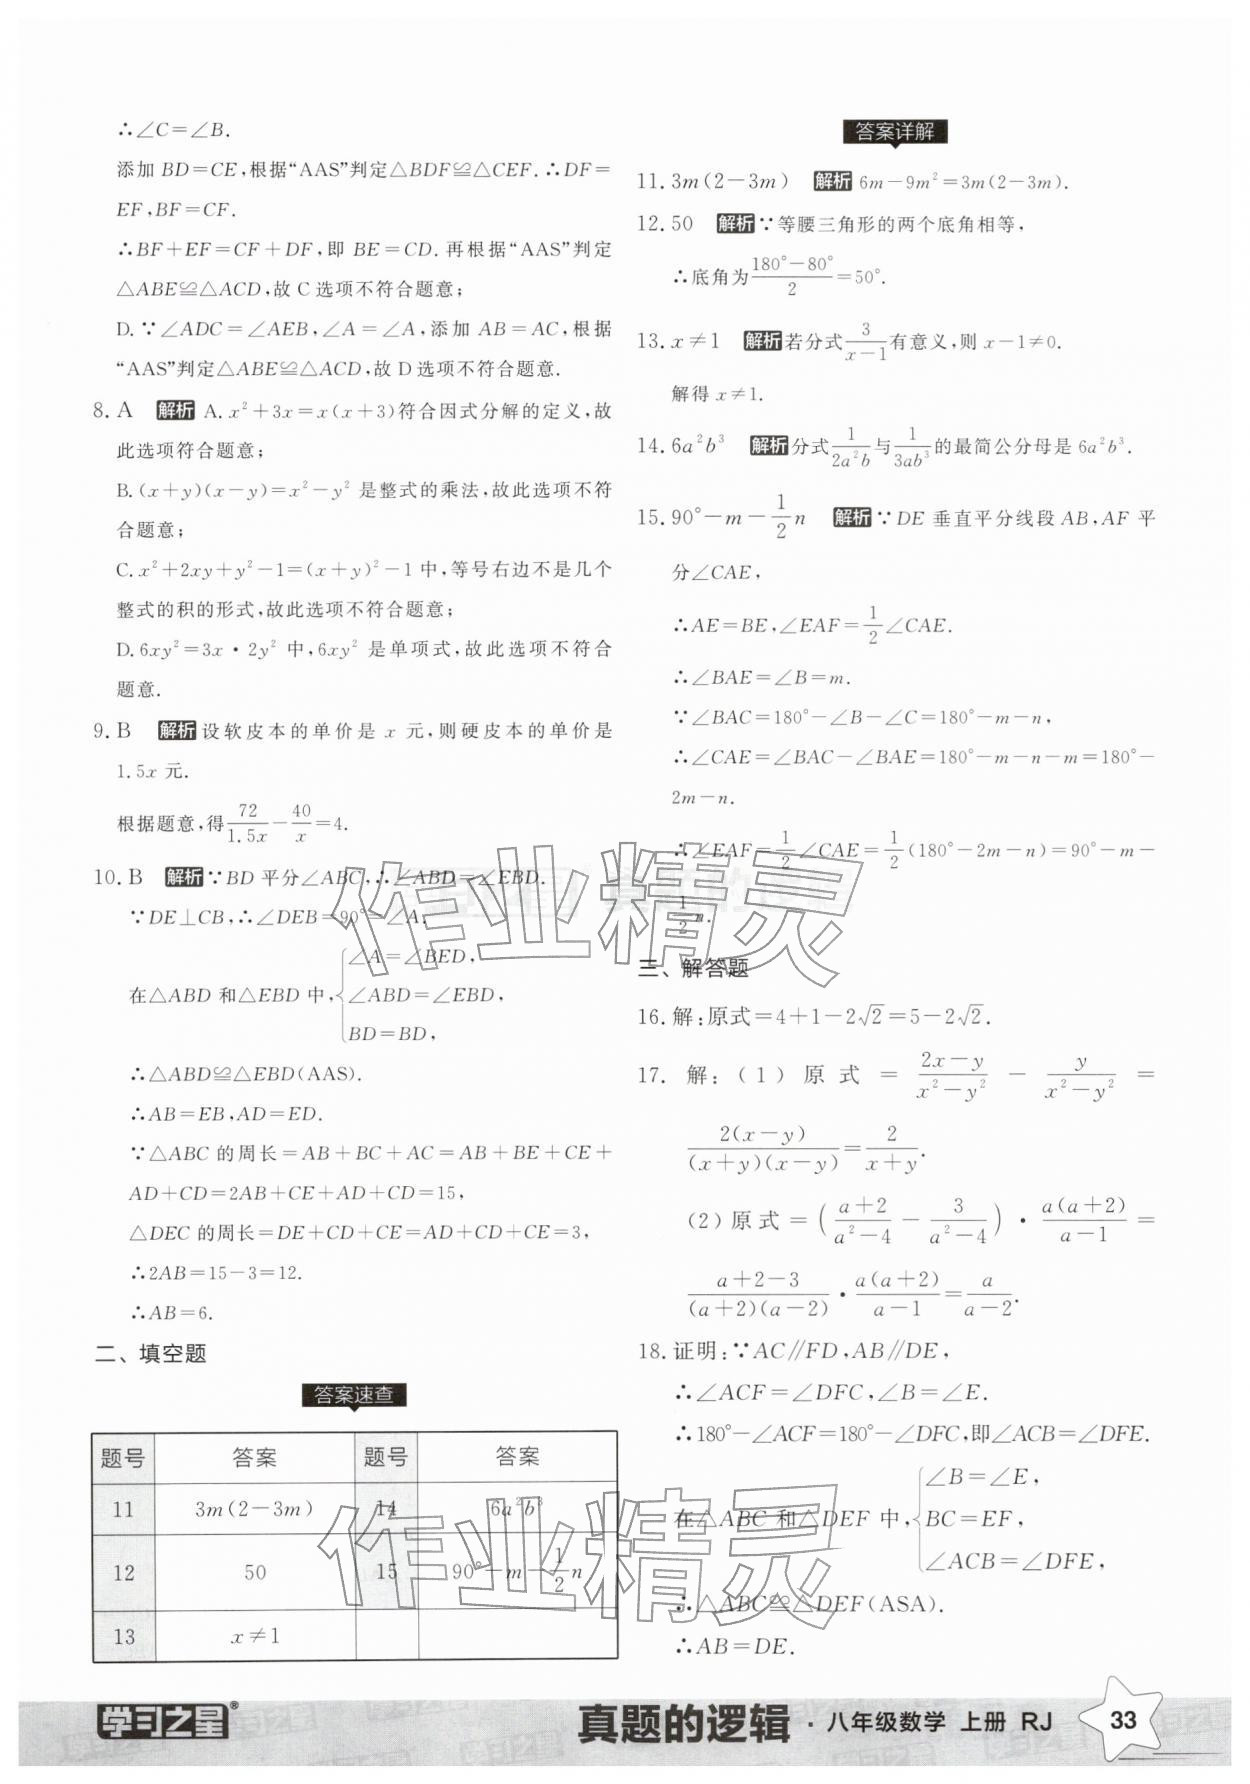 ∴∠C=∠B.
添加 BD=CE,根据“AAS”判定△BDF≌△CEF. ∴DF=
EF,BF=CF.
∴BF+EF=CF+DF,即 BE=CD. 再根据“AAS”判定
△ABE≌△ACD,故 C 选项不符合题意;
D. ∵∠ADC=∠AEB,∠A=∠A,添加 AB=AC,根据
“AAS”判定△ABE≌△ACD,故 D 选项不符合题意.
8. A 解析 A. x²+3x=x(x+3)符合因式分解的定义,故
此选项符合题意;
B. (x+y)(x-y)=x²-y² 是整式的乘法,故此选项不符
合题意;
C. x²+2xy+y²-1=(x+y)²-1 中,等号右边不是几个
整式的积的形式,故此选项不符合题意;
D. 6xy²=3x·2y² 中,6xy² 是单项式,故此选项不符合
题意.
9. B 解析 设软皮本的单价是 x 元,则硬皮本的单价是
1.5x 元.
根据题意,得72/1.5x-40/x=4.
10. B 解析 ∵BD 平分∠ABC,∴∠ABD=∠EBD.
∵DE⊥CB,∴∠DEB=90°=∠A.
在△ABD 和△EBD 中,{∠A=∠BED,
∠ABD=∠EBD,
BD=BD,
∴△ABD≌△EBD(AAS).
∴AB=EB,AD=ED.
∵△ABC 的周长=AB+BC+AC=AB+BE+CE+
AD+CD=2AB+CE+AD+CD=15,
△DEC 的周长=DE+CD+CE=AD+CD+CE=3,
∴2AB=15-3=12.
∴AB=6.
二、填空题
答案速查
题号 答案 题号 答案
11 3m(2-3m) 14 6a²b³
12 50 15 90°-m-1/2n
13 x≠1
答案详解
11. 3m(2-3m) 解析 6m-9m²=3m(2-3m).
12. 50 解析 ∵等腰三角形的两个底角相等,
∴底角为(180°-80°)/2=50°.
13. x≠1 解析 若分式3/(x-1)有意义,则 x-1≠0.
解得 x≠1.
14. 6a²b³ 解析 分式1/(2a²b)与1/(3ab³)的最简公分母是 6a²b³.
15. 90°-m-1/2n 解析 ∵DE 垂直平分线段 AB,AF 平
分∠CAE,
∴AE=BE,∠EAF=1/2∠CAE.
∴∠BAE=∠B=m.
∵∠BAC=180°-∠B-∠C=180°-m-n,
∴∠CAE=∠BAC-∠BAE=180°-m-n-m=180°-
2m-n.
∴∠EAF=1/2∠CAE=1/2(180°-2m-n)=90°-m-
1/2n.
三、解答题
16. 解:原式=4+1-2√2=5-2√2.
17. 解:(1)原式=(2x-y)/(x²-y²)-y/(x²-y²)=
2(x-y)/((x+y)(x-y))=2/(x+y).
(2)原式=((a+2)/(a²-4)-3/(a²-4))·a(a+2)/(a-1)=
(a+2-3)/((a+2)(a-2))·a(a+2)/(a-1)=a/(a-2).
18. 证明:∵AC∥FD,AB∥DE,
∴∠ACF=∠DFC,∠B=∠E.
∴180°-∠ACF=180°-∠DFC,即∠ACB=∠DFE.
在△ABC 和△DEF 中,{∠B=∠E,
BC=EF,
∠ACB=∠DFE,
∴△ABC≌△DEF(ASA).
∴AB=DE.
作业精灵
作业精灵
学习之星®
真题的逻辑·八年级数学 上册 RJ
33